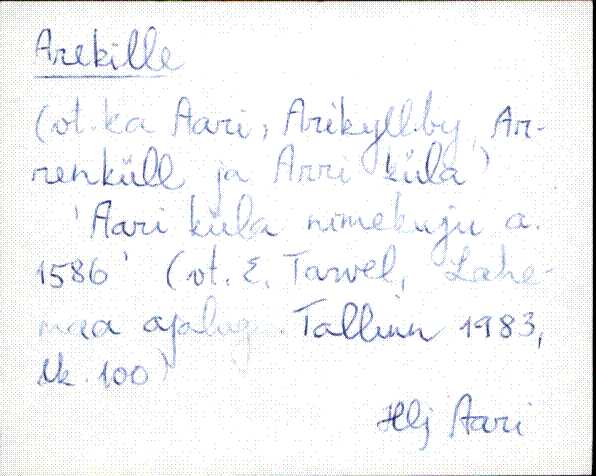 Arekille
(vt. ka Aari, Arikyll by, Ar-
renküll ja Arri küla)
'Aari küla nimekuju a.
1586' (vt. E. Tarvel, Lahe-
maa ajalugu. Tallinn 1983,
lk. 100)
Hlj Aari